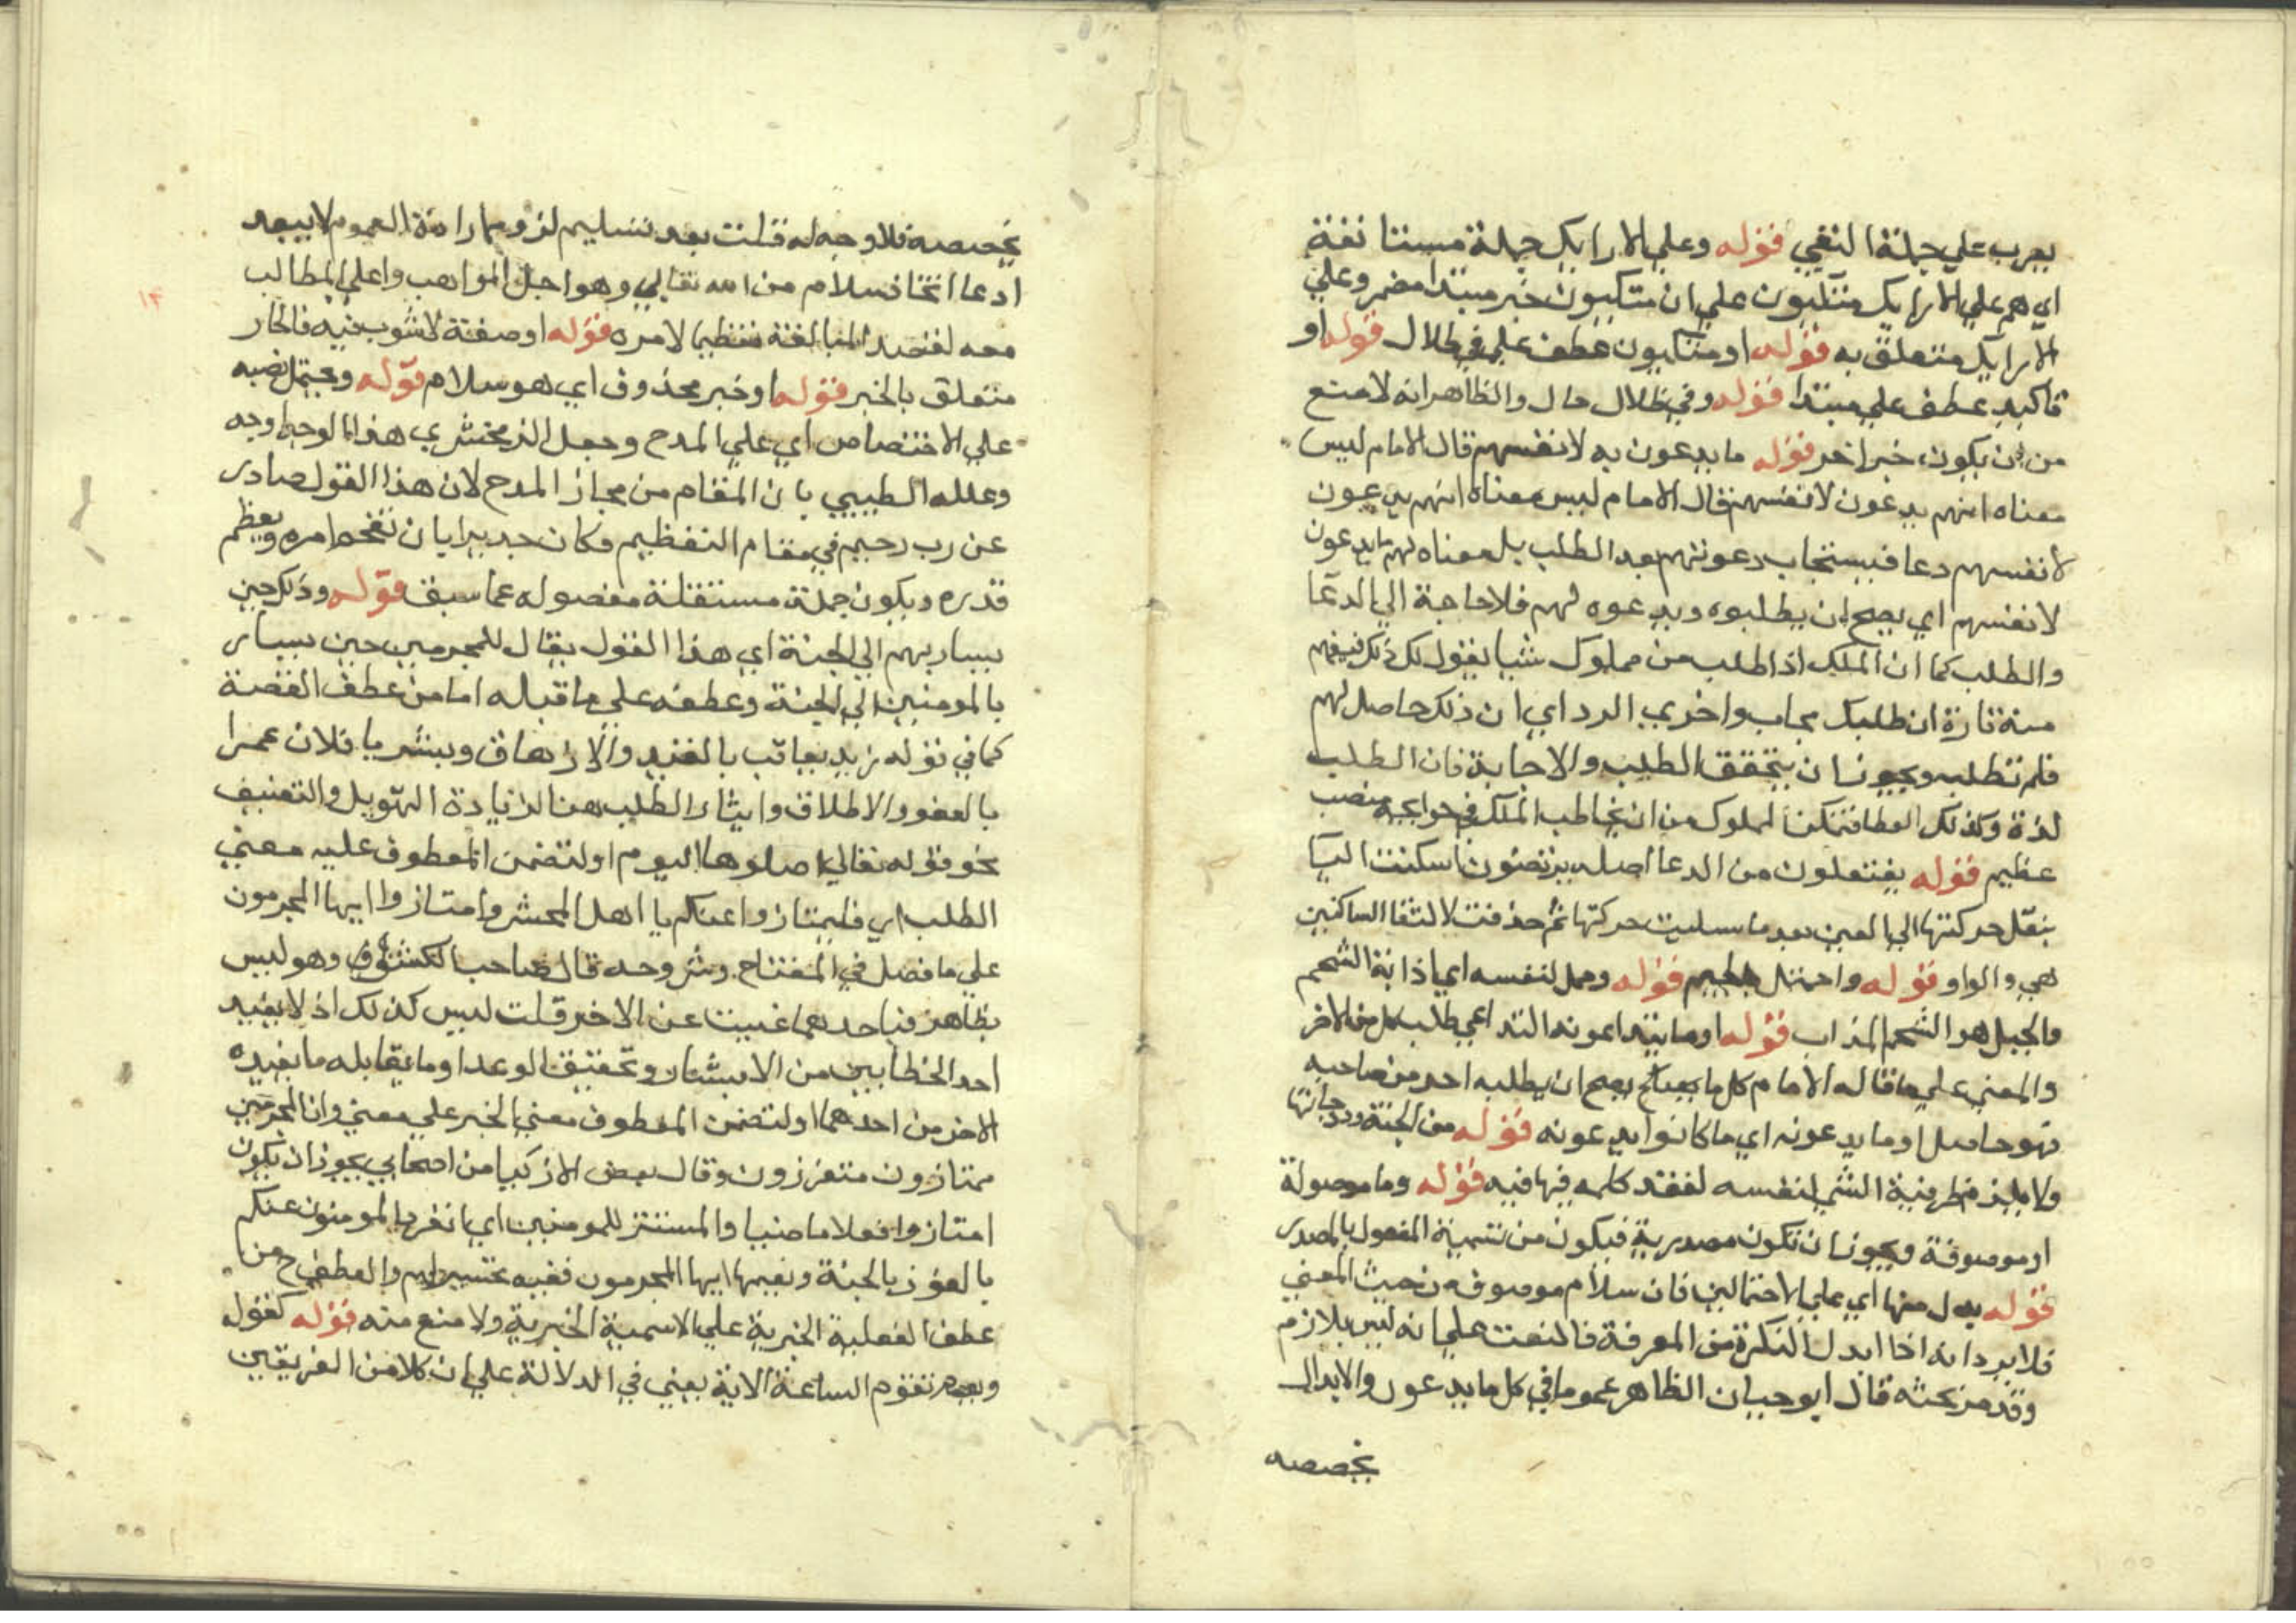 يعرب علي جملة النفي قوله وعلي الارايك جملة مستانفة
اي هم علي الارايك متكيون علي ان متكيون خبر مبتدا مضمر وعلي
الارايك متعلق به قوله او متكيون عطف علي في ظلال قوله او
تاكيد عطف علي مبتدا قوله وفي ظلال حال والظاهر انه لا منع
من ان يكون خبرا اخر قوله ما يدعون به لانفسهم قال الامام ليس
معناه انهم يدعون لانفسهم قال الامام ليس معناه انهم يدعون
لانفسهم دعا فيستجاب دعوتهم بعد الطلب بل معناه لهم ما يدعون
لانفسهم اي يصح ان يطلبوه ويدعوه لهم فلا حاجة الي الدعا
والطلب كما ان الملك اذا طلب من مملوك شيا يقول لك ذلك فيفهم
منه تارة ان طلبك مجاب واخري الرد اي ان ذلك حاصل لهم
فلم تطلب ويجوز ان يتحقق الطلب والاجابة فان الطلب
لذة وكذلك العطا فتمكن المملوك من ان يخاطب الملك في حوايجه منصب
عظيم قوله يفتعلون من الدعا اصله يرتضون اسكنت اليا
بنقل حركتها الي العين بعد ما سلبت حركتها ثم حذفت لالتقا الساكنين
هي والواو قوله واجتمل قوله وحمل لنفسه اي اذابة الشحم
والجميل هو الشحم المذاب قوله او ما يتداعونه التداعي طلب كل من الاخر
والمعني علي ما قاله الامام كل ما يصح ان يطلبه احد من صاحبه
فهو حاصل او ما يدعونه اي ما كانوا يدعونه قوله من الجنة ودرجاتها
ولا يلزم ظرفية الشي لنفسه لفقد كلمه فيها فيه قوله وما موصولة
او موصوفة ويجوز ان تكون مصدرية فيكون من تسمية المفعول بالمصدر
قوله بدل منها اي علي الاحتمالين فان سلام موصوف من حيث المعني
فلا يرد انه اذا ابدل النكرة من المعرفة فالنعت علي انه ليس بلازم
وقد مر بحثه قال ابو حيان الظاهر عموم ما في كل ما يدعون والابدال
يخصصه
يخصصه فلا وجه له قلت بعد تسليم لزوم ارادة العموم لا يبعد
ادعا اتحاد سلام من الله تعالي وهو اجل المواهب واعلي المطالب
معه لقصد المبالغة تعظيما لامره قوله او صفة لا شوب فيه فالجار
متعلق بالخبر قوله او خبر محذوف اي هو سلام قوله ويحتمل نصبه
علي الاختصاص اي علي المدح وجعل الزمخشري هذا الوجه اوجه
وعلله الطيبي بان المقام من مجاز المدح لان هذا القول صادر
عن رب رحيم في مقام التعظيم فكان جديرا بان يفخم امره ويعظم
قدره ويكون جملة مستقلة مفصوله عما سبق قوله وذلك حين
يسار بهم الي الجنة اي هذا القول يقال للمجرمين حين يسار
بالمومنين الي الجنة وعطفه علي ما قبله اما من عطف القصة
كما في قوله زيد يعاقب بالقيد والازهاق وبشر يا فلان عمرا
بالعفو والاطلاق وايثار الطلب هنا لزيادة التهويل والتعنيف
نحو قوله تعالي اصلوها اليوم او لتضمن المعطوف عليه معني
الطلب اي فليمتازوا عنكم يا اهل المحشر وامتازوا ايها المجرمون
علي ما فصل في المفتاح وشروحه قال صاحب الكشف وهو ليس
بظاهر فباحدهما غنيت عن الاخر قلت ليس كذلك اذ لا يفيد
احد الخطابين من الابشار وتحقيق الوعد او ما يقابله ما يفيده
الاخر من احدهما او لتضمن المعطوف معني الخبر علي معني وان المجرمين
ممتازون متفرزون وقال بعض الاذكيا من اصحابي يجوز ان يكون
امتازوا فعلا ماضيا والمستتر للمومنين اي انفرد المومنون عنكم
بالفوز بالجنة ونعيمها ايها المجرمون ففيه تحسير لهم والعطف ح من
عطف الفعلية الخبرية علي الاسمية الخبرية ولا منع منه قوله كقول
ويوم تقوم الساعة الاية يعني في الدلالة علي ان كلا من الفريقين